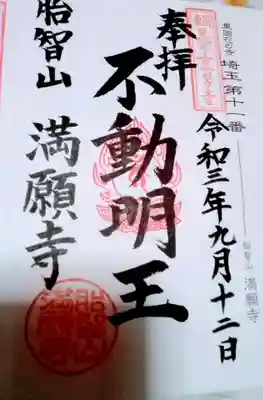 東国花の寺 埼玉第十一番
奉拝
令和三年九月十二日
不動明王
胎智山
満願寺
満願寺